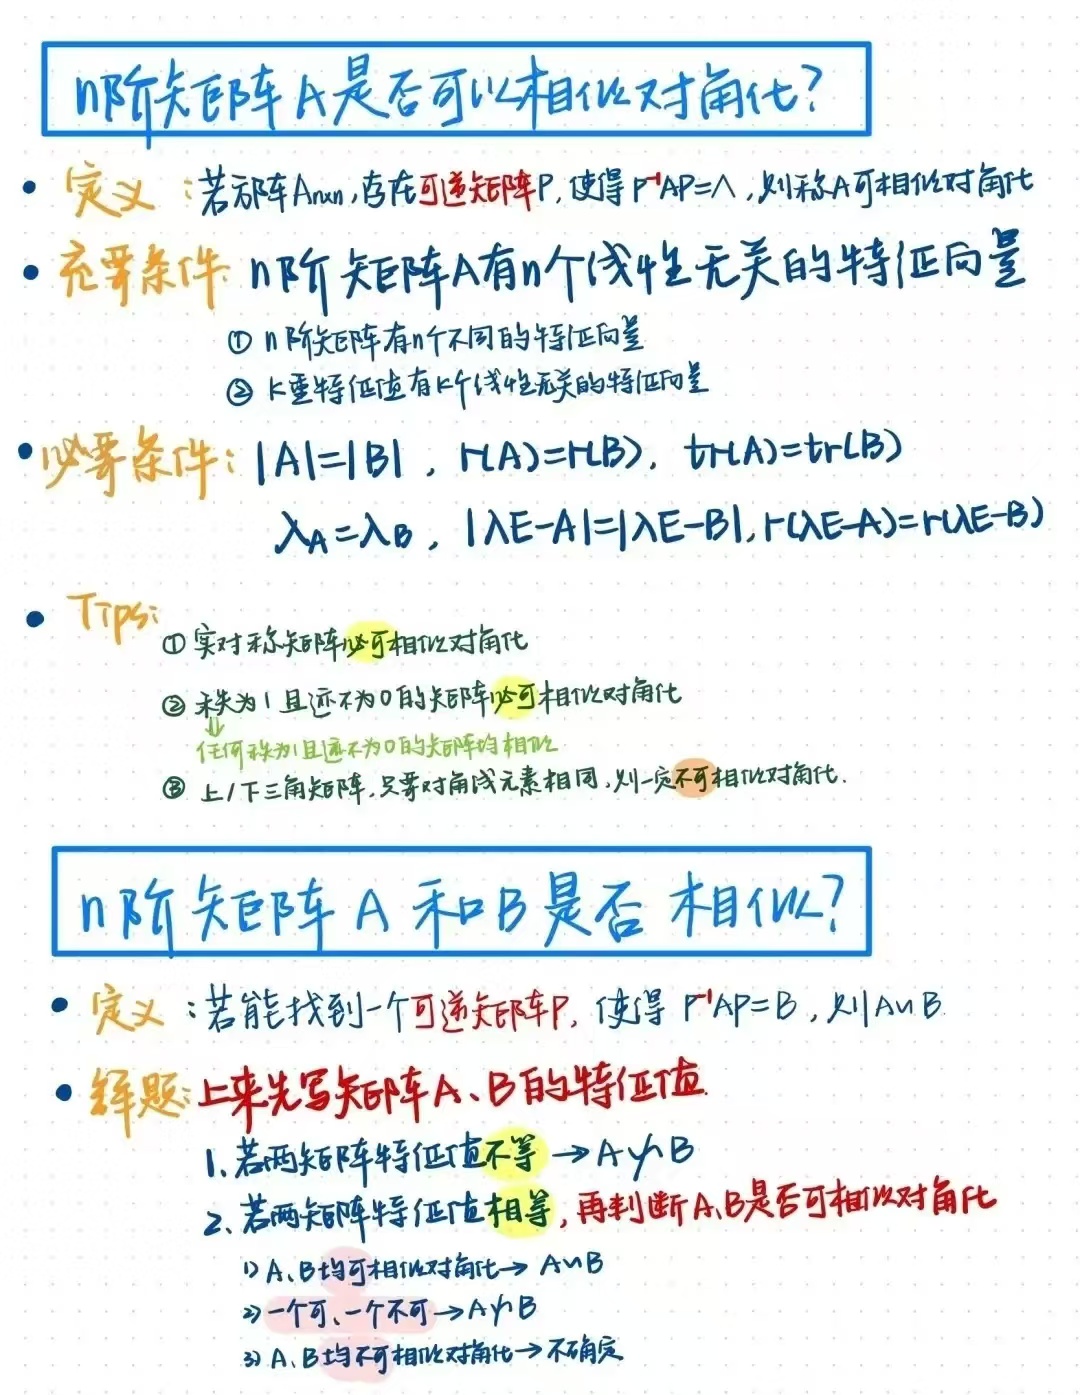 n阶矩阵A是否可以相似对角化?
• 定义:若方阵Anxn,存在可逆矩阵P,使得P⁻¹AP=Λ,则称A可相似对角化
• 充要条件: n阶矩阵A有n个线性无关的特征向量
① n阶矩阵有n个不同的特征向量
② k重特征值有k个线性无关的特征向量
• 必要条件: |A|=|B|, r(A)=r(B), tr(A)=tr(B)
λA=λB, |λE-A|=|λE-B|, r(λE-A)=r(λE-B)
• Tips:
① 实对称矩阵必可相似对角化
② 秩为1且迹不为0的矩阵必可相似对角化
↓
任何秩为1且迹不为0的矩阵均相似
③ 上/下三角矩阵,只要对角线元素相同,则一定不可相似对角化.
n阶矩阵A和B是否相似?
• 定义:若能找到一个可逆矩阵P,使得P⁻¹AP=B,则A∽B
• 解题:上来先写矩阵A、B的特征值
1、若两矩阵特征值不等→A≁B
2、若两矩阵特征值相等,再判断A、B是否可相似对角化
1) A、B均可相似对角化→A∽B
2) 一个可、一个不可→A≁B
3) A、B均不可相似对角化→不确定